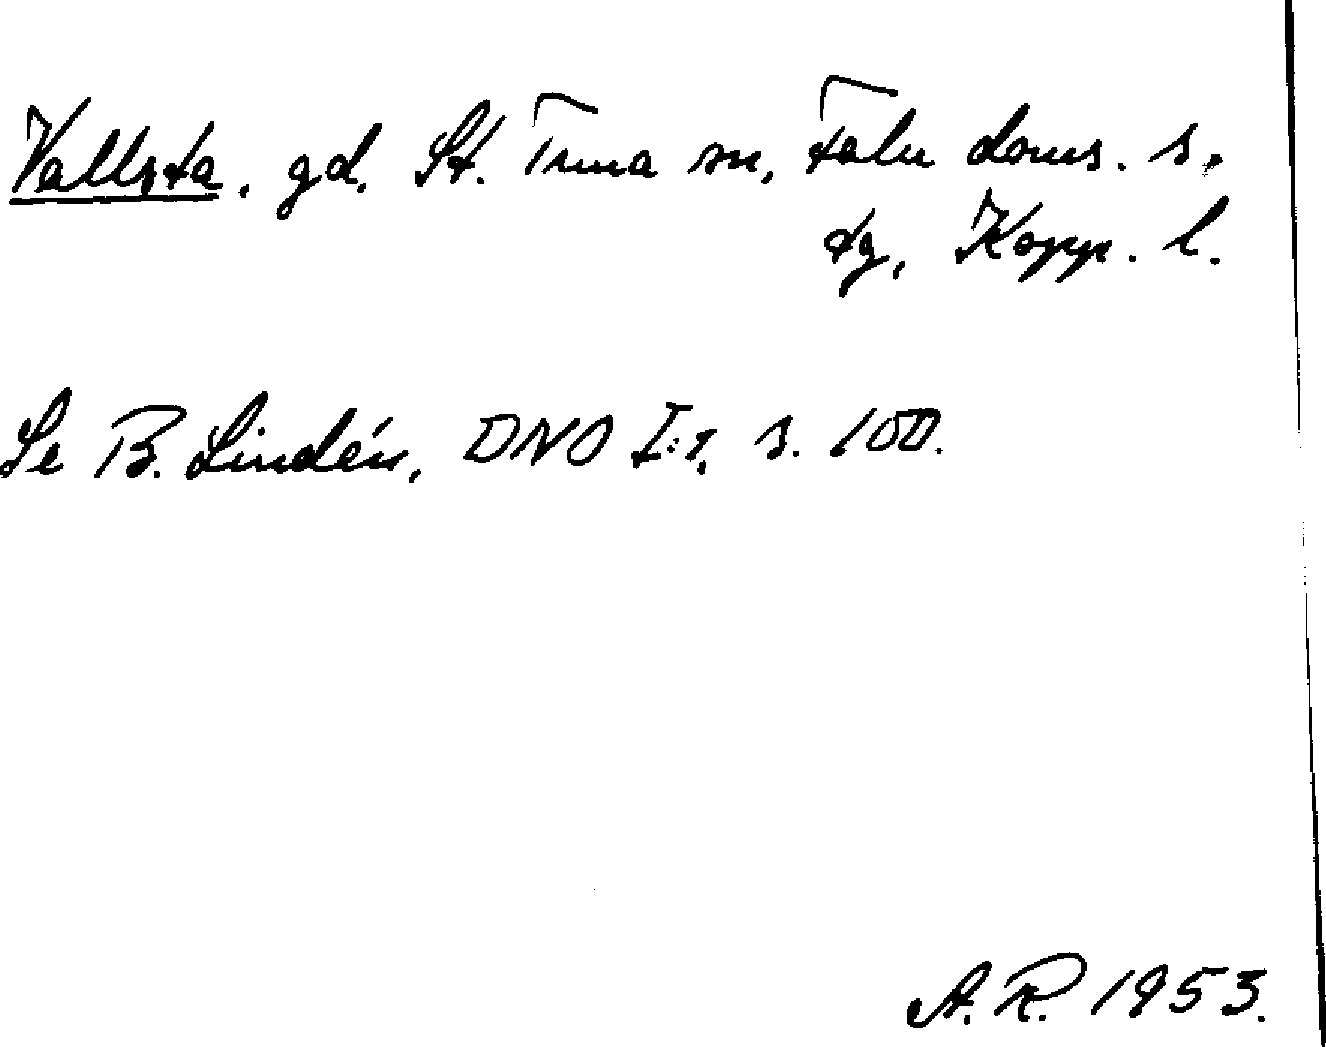 Vallsta, gd, St. Tuna sn, Falu doms. s.
tg, Kopp. l.
Se B. Lindén, DNO I:1, s. 100.
A. R. 1953.